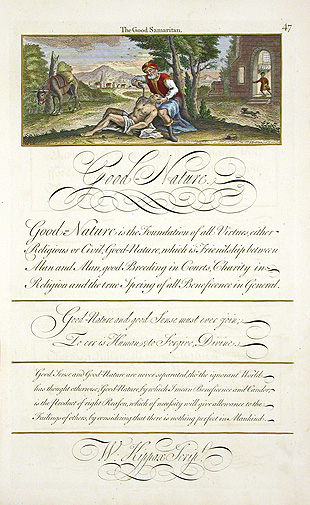 The Good Samaritan.
47
Good Nature.
Good-Nature is the Foundation of all Virtues, either
Religious or Civil, Good-Nature, which is Friendship between
Man and Man, good Breeding in Courts, Charity in
Religion and the true Spring of all Beneficence in General.
Good-Nature and good Sense must ever join;
To err is Human; to Forgive, Divine.
Good Sense and Good-Nature are never separated, tho' the ignorant World
has thought otherwise, Good-Nature, by which I mean Beneficence and Candor,
is the Product of right Reason, which of necessity will give allowance to the
Failings of others, by considering that there is nothing perfect in Mankind.
W. Kippax Scrip.t